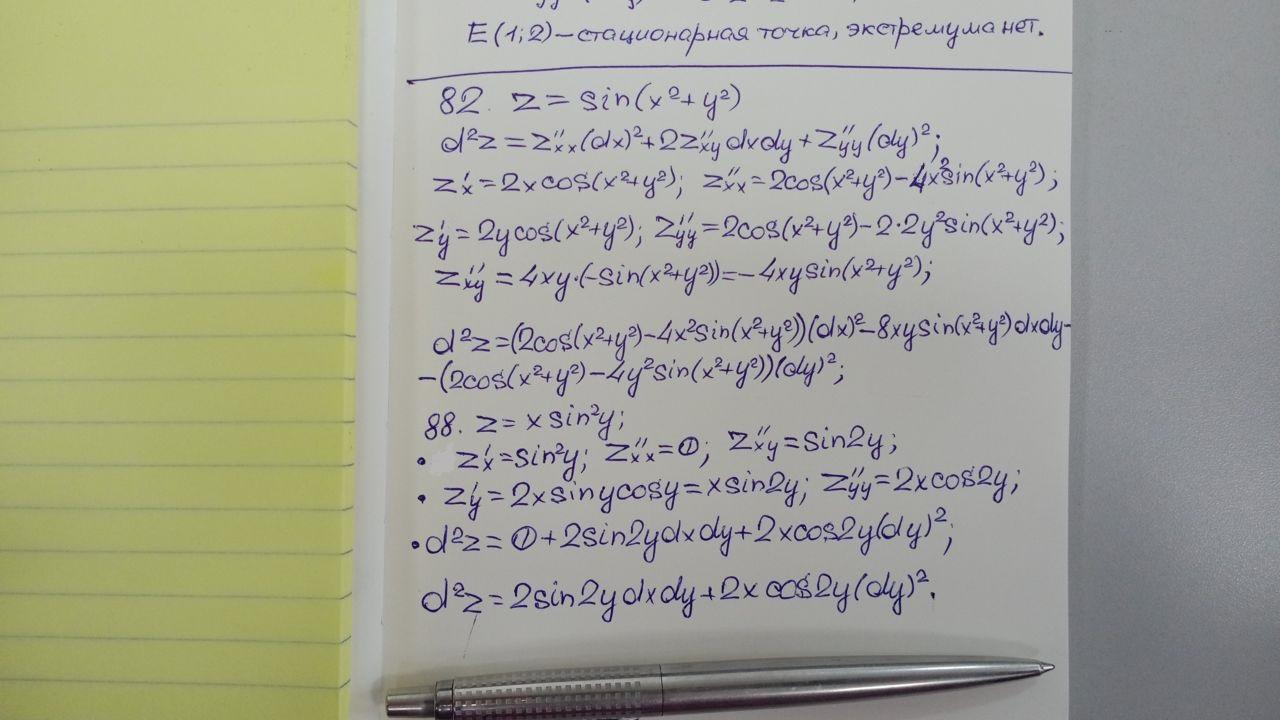 E(1;2)–стационарная точка, экстремума нет.
82. z = sin(x²+y²)
d²z = z''xx(dx)²+2z''xy dxdy+z''yy(dy)²;
z'x=2xcos(x²+y²); z''xx=2cos(x²+y²)–4x²sin(x²+y²);
z'y=2ycos(x²+y²); z''yy=2cos(x²+y²)–2·2y²sin(x²+y²);
z''xy=4xy·(-sin(x²+y²))=–4xysin(x²+y²);
d²z=(2cos(x²+y²)–4x²sin(x²+y²))(dx)²–8xysin(x²+y²)dxdy–
–(2cos(x²+y²)–4y²sin(x²+y²))(dy)²;
88. z= x sin²y;
• z'x=sin²y; z''xx=0; z''xy=sin2y;
• z'y=2xsinycosy=xsin2y; z''yy=2xcos2y;
• d²z=0+2sin2ydxdy+2xcos2y(dy)²;
d²z=2sin2ydxdy+2xcos2y(dy)².